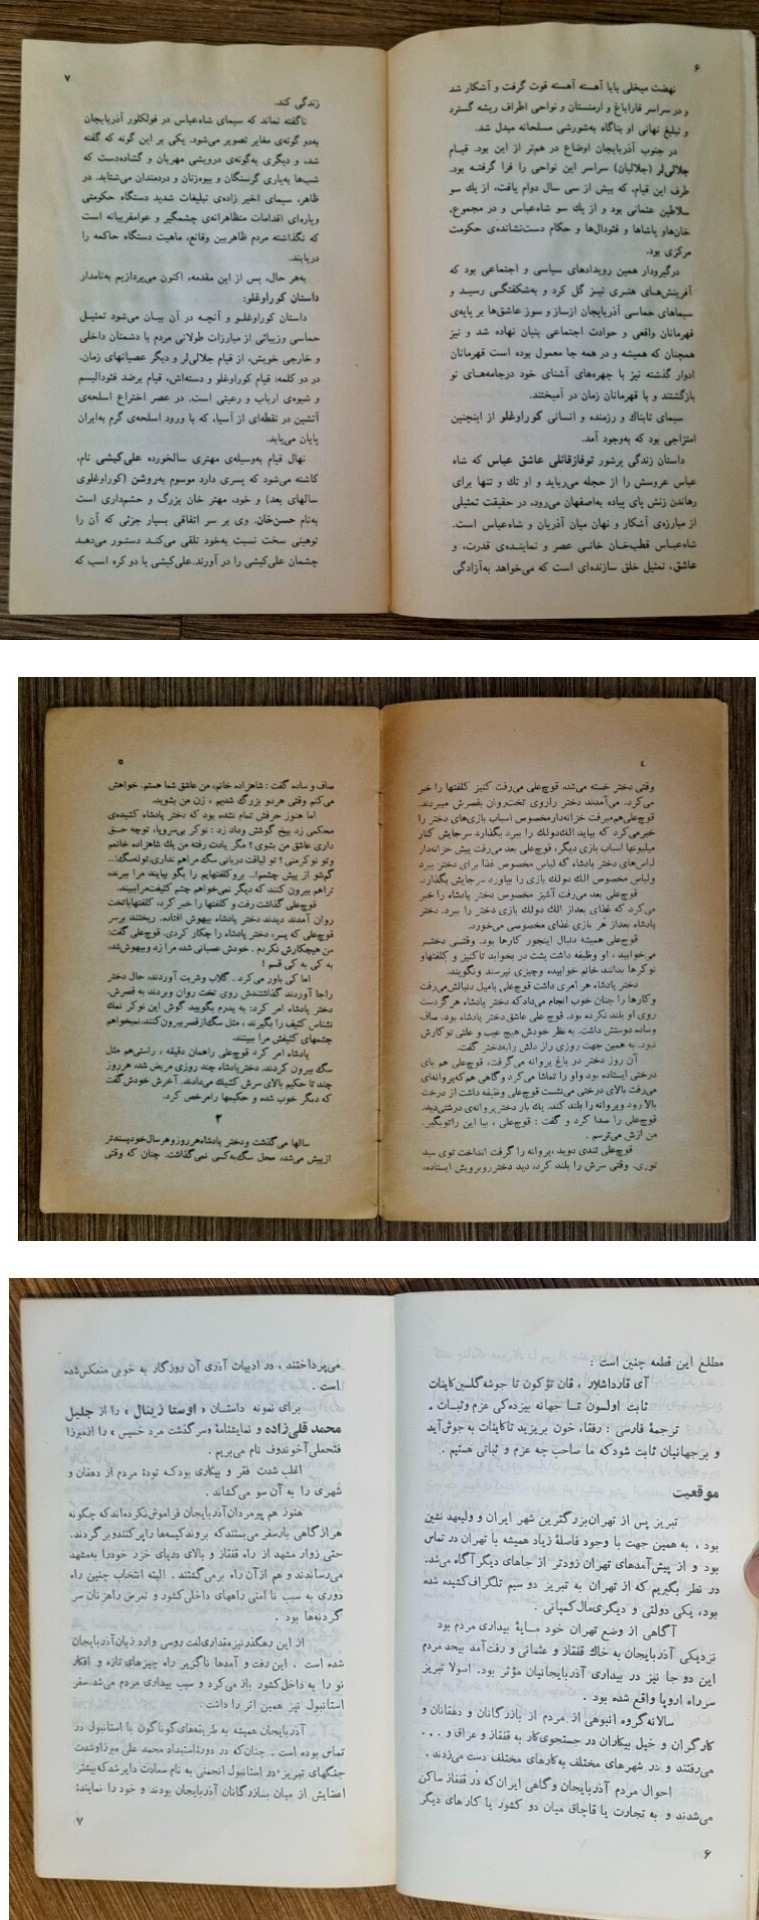 ۶
نهضت میخلی بابا آهسته آهسته قوت گرفت و آشکار شد
و در سراسر قاراباغ و ارمنستان و نواحی اطراف ریشه گسترد
و تبلیغ نهانی او بناگاه به‌شورشی مسلحانه مبدل شد.
در جنوب آذربایجان اوضاع در هم‌تر از این بود. قیام
جلالی‌لر (جلالیان) سراسر این نواحی را فرا گرفته بود.
طرف این قیام، که بیش از سی سال دوام یافت، از یك سو
سلاطین عثمانی بود و از یك سو شاه‌عباس و در مجموع،
خان‌ها و پاشاها و فئودال‌ها و حکام دست‌نشانده‌ی حکومت
مرکزی بود.
درگیرودار همین رویدادهای سیاسی و اجتماعی بود که
آفرینش‌های هنری نیز گل کرد و به‌شکفتگی رسید و
سیماهای حماسی آذربایجان از ساز و سوز عاشق‌ها بر پایه‌ی
قهرمانان واقعی و حوادث اجتماعی بنیان نهاده شد و نیز
همچنان که همیشه و در همه جا معمول بوده است قهرمانان
ادوار گذشته نیز با چهره‌های آشنای خود درجامه‌های نو
بازگشتند و با قهرمانان زمان در آمیختند.
سیمای تابناك و رزمنده و انسانی کوراوغلو از اینچنین
امتزاجی بود که به‌وجود آمد.
داستان زندگی پرشور توفارقانلی عاشق عباس که شاه
عباس عروسش را از حجله می‌رباید و او تك و تنها برای
رهاندن زنش پای پیاده به‌اصفهان می‌رود، در حقیقت تمثیلی
از مبارزه‌ی آشکار و نهان میان آذریان و شاه‌عباس است.
شاه‌عباس قطب‌خان خانی عصر و نماینده‌ی قدرت، و
عاشق، تمثیل خلق سازنده‌ای است که می‌خواهد به‌آزادگی
۷
زندگی کند.
ناگفته نماند که سیمای شاه‌عباس در فولکلور آذربایجان
به‌دو گونه‌ی مغایر تصویر می‌شود. یکی بر این گونه که گفته
شد، و دیگری به‌گونه‌ی درویشی مهربان و گشاده‌دست که
شب‌ها به‌یاری گرسنگان و بیوه‌زنان و دردمندان می‌شتابد. در
ظاهر، سیمای اخیر زاده‌ی تبلیغات شدید دستگاه حکومتی
وپاره‌ای اقدامات متظاهرانه‌ی چشمگیر و عوامفریبانه است
که نگذاشته مردم ظاهربین وقانع، ماهیت دستگاه حاکمه را
دریابند.
به‌هر حال، پس از این مقدمه، اکنون می‌پردازیم به‌نامدار
داستان کوراوغلو:
داستان کوراوغلو و آنچه در آن بیان می‌شود تمثیل
حماسی وزیبائی از مبارزات طولانی مردم با دشمنان داخلی
و خارجی خویش، از قیام جلالی‌لر و دیگر عصیانهای زمان.
در دو کلمه: قیام کوراوغلو و دسته‌اش، قیام برضد فئودالیسم
و شیوه‌ی ارباب و رعیتی است. در عصر اختراع اسلحه‌ی
آتشین در نقطه‌ای از آسیا، که با ورود اسلحه‌ی گرم به‌ایران
پایان می‌یابد.
نهال قیام به‌وسیله‌ی مهتری سالخورده علی‌کیشی نام،
کاشته می‌شود که پسری دارد موسوم به‌روشن (کوراوغلوی
سالهای بعد) و خود، مهتر خان بزرگ و حشم‌داری است
به‌نام حسن‌خان. وی بر سر اتفاقی بسیار جزئی که آن را
توهینی سخت نسبت به‌خود تلقی می‌کند دستور می‌دهد
چشمان علی‌کیشی را در آورند.علی‌کیشی با دو کره اسب که
٤
وقتی دختر خسته می‌شد، قوچ‌علی می‌رفت کنیز کلفتها را خبر
می‌کرد. می‌آمدند دختر راروی تخت‌روان بقصرش میبردند.
قوچ‌علی‌هم‌میرفت خزانه‌دارمخصوص اسباب بازی‌های دختر را
خبرمی‌کرد که بیاید الك‌دولك را ببرد بگذارد سرجایش کنار
میلیونها اسباب بازی دیگر، قوچ‌علی بعد می‌رفت پیش خزانه‌دار
لباس‌های دختر پادشاه که لباس مخصوص غذا برای دختر ببرد
ولباس مخصوص الك دولك بازی را بیاورد سرجایش بگذارد.
قوچ‌علی بعد میرفت آشپز مخصوص دختر پادشاه را خبر
می‌کرد که غذای بعداز الك دولك بازی دختر را ببرد. دختر
پادشاه بعداز هر بازی غذای مخصوصی می‌خورد.
قوچ‌علی همیشه دنبال اینجور کارها بود. وقتی دختر
می‌خوابید ، او وظیفه داشت پشت در بخوابد تاکنیز و کلفتهاو
نوکرها بدانند خانم خوابیده وچیزی نپرسند ونگویند.
دختر پادشاه هر امری داشت قوچ‌علی بامیل دنبالش‌میرفت
وکارها را چنان خوب انجام می‌دادکه دختر پادشاه هرگزدست
روی او بلند نکرده بود. قوچ علی عاشق دختر پادشاه بود. صاف
وساده دوستش داشت. به نظر خودش هیچ عیب و علتی توکارش
نبود. به همین جهت روزی راز دلش رابه‌دختر گفت.
آن روز دختر در باغ پروانه می‌گرفت، قوچ‌علی هم پای
درختی ایستاده بود واو را تماشا می‌کرد وگاهی هم‌که‌پروانه‌ای
می‌رفت بالای درختی می‌نشست قوچ‌علی وظیفه داشت از درخت
بالا رود وپروانه را بلند کند. یك بار دخترپروانه‌ی درشتی‌دید.
قوچ‌علی را صدا کرد و گفت : قوچ‌علی ، بیا این راتوبگیر.
من ازش می‌ترسم .
قوچ‌علی تندی دوید، پروانه را گرفت انداخت توی سبد
توری. وقتی سرش را بلند کرد، دید دختررو‌برویش ایستاده،
۵
صاف و ساده گفت : شاهزاده خانم، من عاشق شما هستم. خواهش
می‌کنم وقتی هردو بزرگ شدیم ، زن من بشوید.
اما هنوز حرفش تمام نشده بود که دختر پادشاه کشیده‌ی
محکمی زد بیخ گوشش وداد زد : نوکر بی‌سروپا، توچه حق
داری عاشق من بشوی ؟ مگر یادت رفته من یك شاهزاده خانمم
وتو نوکرمنی ؟ تو لیاقت دربانی سگ مراهم نداری،توله‌سگ!..
گم‌شو از پیش چشمم!.. بروکلفتهایم را بگو بیایند مرا ببرند،
تراهم بیرون کنند که دیگر نمی‌خواهم چشم کثیفت‌مراببیند.
قوچ‌علی گذاشت رفت و کلفتها را خبر کرد، کلفتهاباتخت
روان آمدند دیدند دختر پادشاه بیهوش افتاده. ریختند برسر
قوچ‌علی که پسر، دختر پادشاه را چکار کردی. قوچ‌علی گفت:
من هیچکارش نکردم . خودش عصبانی شد، مرا زد وبیهوش‌شد،
به کی به کی قسم !
اما کی باور می‌کرد . گلاب وشربت آوردند، حال دختر
راجا آوردند گذاشتندش روی تخت روان وبردند به قصرش.
دختر پادشاه امر کرد: به پدرم بگویید گوش این نوکر نمك
نشناس کثیف را بگیرند ، مثل سگ‌ازقصربیرون‌کنند.نمیخواهم
چشمهای کثیفش مرا ببینند.
پادشاه امر کرد قوچ‌علی راهمان دقیقه ، راستی‌هم مثل
سگ بیرون کردند. دخترپادشاه چند روزی مریض شد، هرروز
چند تا حکیم بالای سرش کشیك می‌دادند. آخرش خودش‌گفت
که دیگر خوب شده و حکیمها رامرخص کرد.
۲
سالها می‌گذشت ودختر پادشاه‌هرروزوهرسال‌خودپسندتر
ازپیش می‌شد، محل سگ‌به‌کسی نمی‌گذاشت. چنان که وقتی
مطلع این قطعه چنین است :
آی قارداشلار ، قان توکون تا جوشه گلسین‌کاینات
ثابت اولسون تا جهانه بیزده‌کی عزم وثبات .
ترجمهٔ فارسی : رفقا، خون بریزید تاکاینات به جوش‌آید
و برجهانیان ثابت شودکه ما صاحب چه عزم و ثباتی هستیم .
موقعیت
تبریز پس از تهران‌بزرگترین شهر ایران و ولیعهد نشین
بود ، به همین جهت با وجود فاصلهٔ زیاد همیشه با تهران در تماس
بود و از پیش‌آمدهای تهران زودتر از جاهای دیگرآگاه می‌شد.
در نظر بگیریم که از تهران به تبریز دو سیم تلگراف‌کشیده شده
بود، یکی دولتی و دیگری‌مال‌کمپانی .
آگاهی از وضع تهران خود مایهٔ بیداری مردم بود
نزدیکی آذربایجان به خاك قفقاز و عثمانی و رفت‌آمد بیحد مردم
این دو جا نیز در بیداری آذربایجانیان مؤثر بود. اصولا تبریز
سرراه اروپا واقع شده بود .
سالانه‌گروه انبوهی از مردم از بازرگانان و دهقانان و
کارگران و خیل بیکاران در جستجوی‌کار به قفقاز و عراق و . . .
می‌رفتند و در شهرهای مختلف به‌کارهای مختلف دست می‌زدند .
احوال مردم آذربایجان وگاهی ایران‌که در قفقاز ساکن
می‌شدند و به تجارت یا قاچاق میان دو کشور یا کارهای دیگر
۶
می‌پرداختند ، در ادبیات آذری آن روزگار به خوبی منعکس‌شده
است .
برای نمونه داستان « اوستا زینال » را از جلیل
محمد قلی‌زاده و نمایشنامهٔ «سرگذشت مرد خسیس » را ازمیرزا
فتحعلی‌آخوندوف نام می‌بریم .
اغلب شدت فقر و بیکاری بودکه تودهٔ مردم از دهقان و
شهری را به آن سو می‌کشاند .
هنوز هم پیرمردان‌آذربایجان فراموش‌نکرده‌اندکه چگونه
هرازگاهی بارسفر می‌بستندکه بروندکیسه‌ها راپرکنندوبرگردند.
حتی زوار مشهد از راه قفقاز و بالای دریای خزر خودرا به‌مشهد
می‌رساندند و هم ازآن راه برمی‌گشتند . البته انتخاب چنین راه
دوری به سبب نا امنی راههای داخلی‌کشور و تعرض راهزنان سر
گردنه‌ها بود .
از این رهگذرنیزمقداری‌لغت روسی وارد زبان‌آذربایجان
شده است . این رفت و آمدها ناگزیر راه چیزهای تازه و افکار
نو را به داخل‌کشور باز می‌کرد و سبب بیداری مردم می‌شد.سفر
استانبول نیز همین اثر را داشت .
آذربایجان همیشه به طریقه‌های‌گوناگون با استانبول در
تماس بوده است . چنان‌که در دورهٔ‌استبداد محمد علی میرزاوشدت
جنگهای تبریز ،در استانبول انجمنی به نام سعادت دایرشدکه‌بیشتر
اعضایش از میان بازرگانان آذربایجان بودند و خود را نمایندهٔ
۷